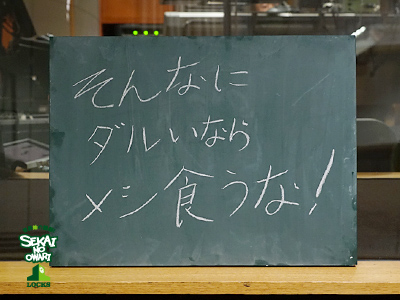 そんなに
ダルいなら
メシ食うな!
SEKAI
NO
OWARI
LOCKS